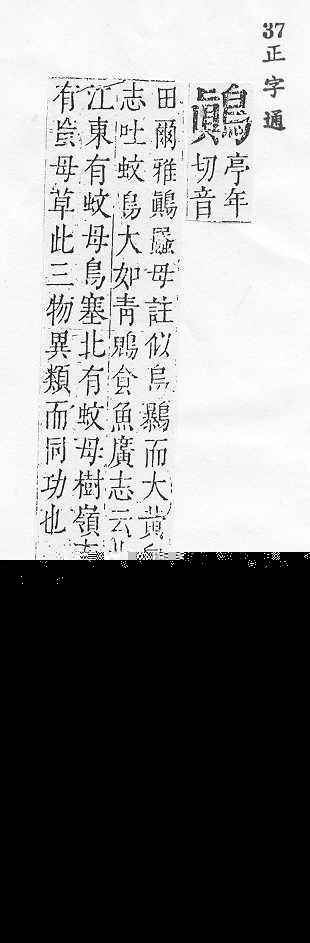 37正字通
鷏亭年
切音
田爾雅鷏蟁母註似烏鷃而大黄
志吐蚊鳥大如青鶂食魚廣志云
江東有蚊母鳥塞北有蚊母樹嶺
有蚉母草此三物異類而同功也